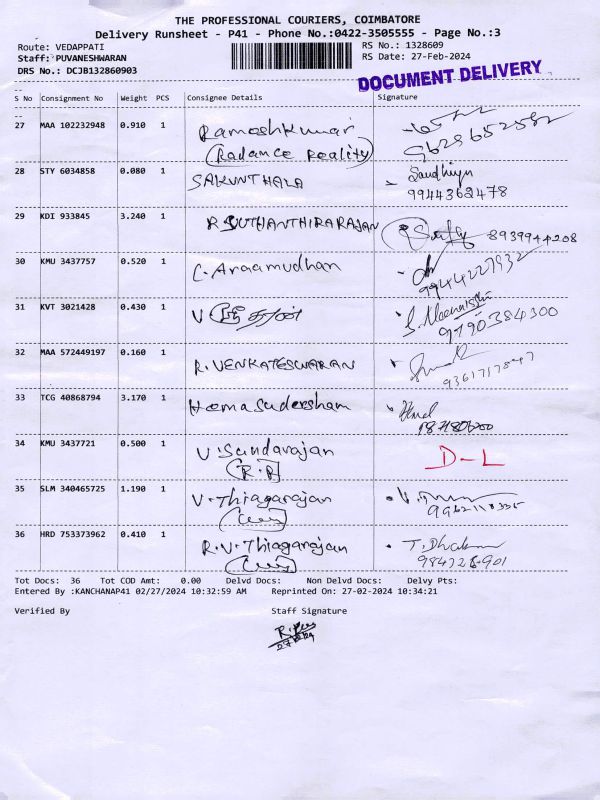 THE PROFESSIONAL COURIERS, COIMBATORE
Delivery Runsheet - P41 - Phone No.:0422-3505555 - Page No.:3
Route: VEDAPPATI
RS No.: 1328609
Staff: PUVANESHWARAN
RS Date: 27-Feb-2024
DRS No.: DCJB132860903
DOCUMENT DELIVERY
S No Consignment No Weight PCS Consignee Details Signature
27 MAA 102232948 0.910 1 Rameshkumar
(Radance Reality) 9629652582
28 STY 6034858 0.080 1 SAKUNTHALA Sandhiya
9944362478
29 KDI 933845 3.240 1 R SUTHANTHIRARAJAN 8939944208
30 KMU 3437757 0.520 1 C. Araamudhan
9944227932
31 KVT 3021428 0.430 1 V S. Meenakshi
9790384300
32 MAA 572449197 0.160 1 R. VENKATESWARAN
33 TCG 40868794 3.170 1 Hemasudersham
34 KMU 3437721 0.500 1 V. Sundarajan D-L
(R.P)
35 SLM 340465725 1.190 1 V. Thiagarajan
36 HRD 753373962 0.410 1 R.V. Thiagarajan
Tot Docs: 36 Tot COD Amt: 0.00 Delvd Docs: Non Delvd Docs: Delvy Pts:
Entered By :KANCHANAP41 02/27/2024 10:32:59 AM Reprinted On: 27-02-2024 10:34:21
Verified By Staff Signature